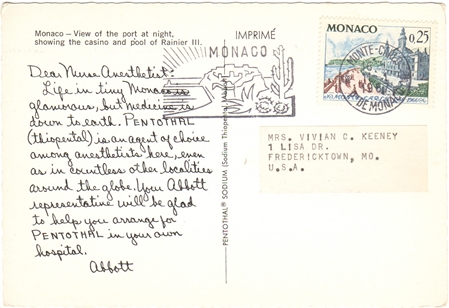 Monaco – View of the port at night,
showing the casino and pool of Rainier III.
Dear Nurse Anesthetist:
Life in tiny Monaco is
glamorous, but medicine is
down to earth. PENTOTHAL
(thiopental) is an agent of choice
among anesthetists here, even
as in countless other localities
around the globe. Your Abbott
representative will be glad
to help you arrange for
PENTOTHAL in your own
hospital.
Abbott
PENTOTHAL® SODIUM (Sodium Thiopental
IMPRIMÉ
MONACO
MONACO
0,25
MONTE-CARLO
PTÉ DE MONACO
MRS. VIVIAN C. KEENEY
1 LISA DR.
FREDERICKTOWN, MO.
U.S.A.